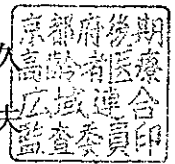 久
夫
京都府後期
高齢者医療
広域連合
監査委員印